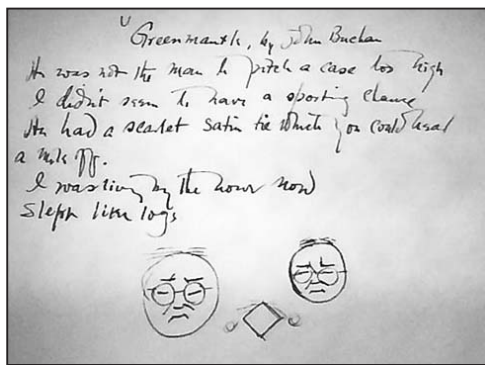 "Greenmantle, by John Buchan
He was not the man to pitch a case too high
I didn't seem to have a sporting chance
He had a scarlet satin tie which you could hear
a mile off.
I was living by the hour now
Slept like logs